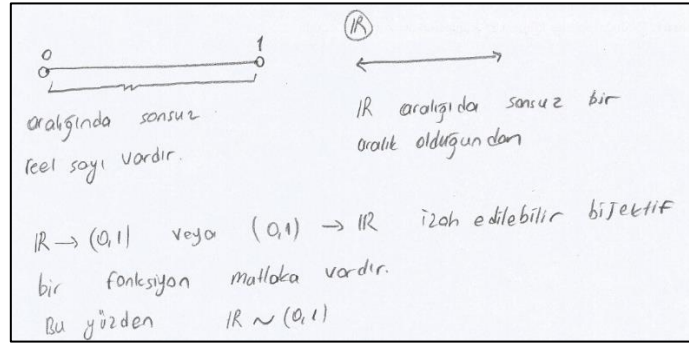 0 1
aralığında sonsuz
reel sayı vardır.
IR
IR aralığıda sonsuz bir
aralık olduğundan
IR → (0,1) veya (0,1) → IR izah edilebilir bijektif
bir fonksiyon matlaka vardır.
Bu yüzden IR ~ (0,1)